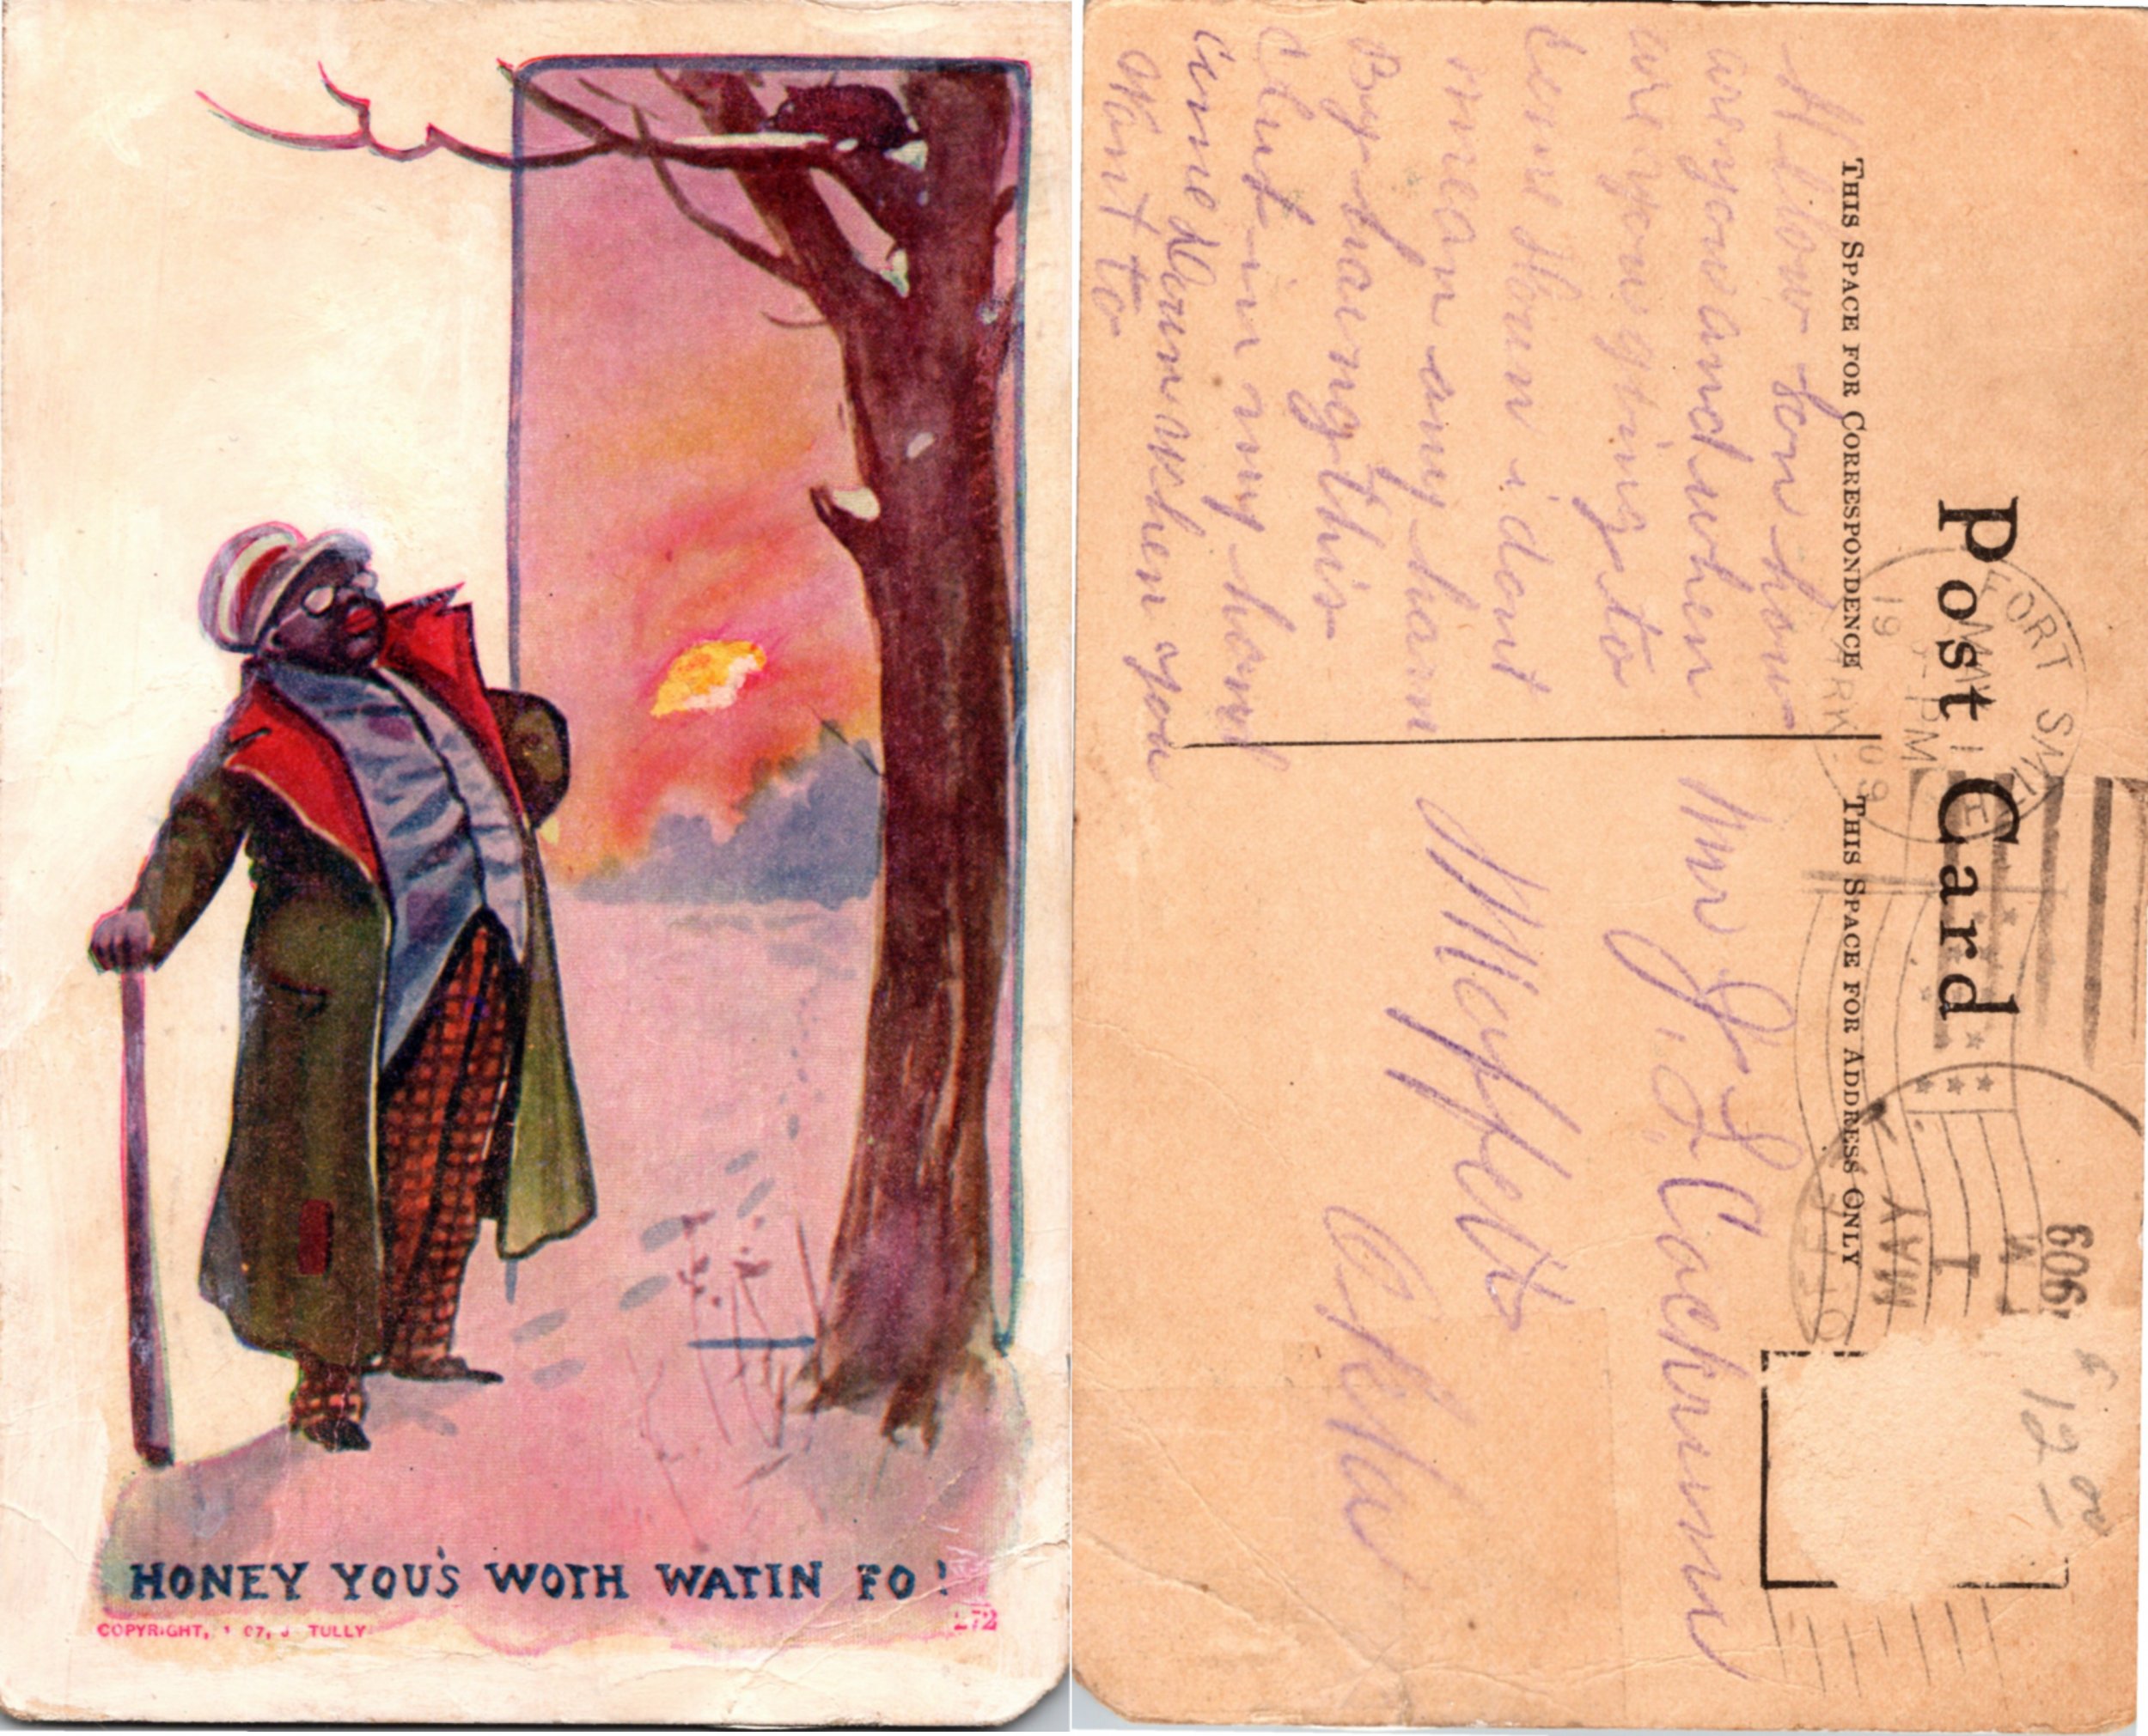 HONEY YOU'S WOTH WATIN FO!
COPYRIGHT, 1 07, J TULLY
272
Post Card
THIS SPACE FOR CORRESPONDENCE
THIS SPACE FOR ADDRESS ONLY
FORT SMITH
MAY 1
19 - PM
09
ARK.
MAY
1
M
1909
$12 00
Hellow Son how
are you and when
are you gying to
come Down i dont
mean any harm
By haingthis
Club in my hand
come Down when you
Want to
Mr J. L. Cockrum
Moffett
Okla